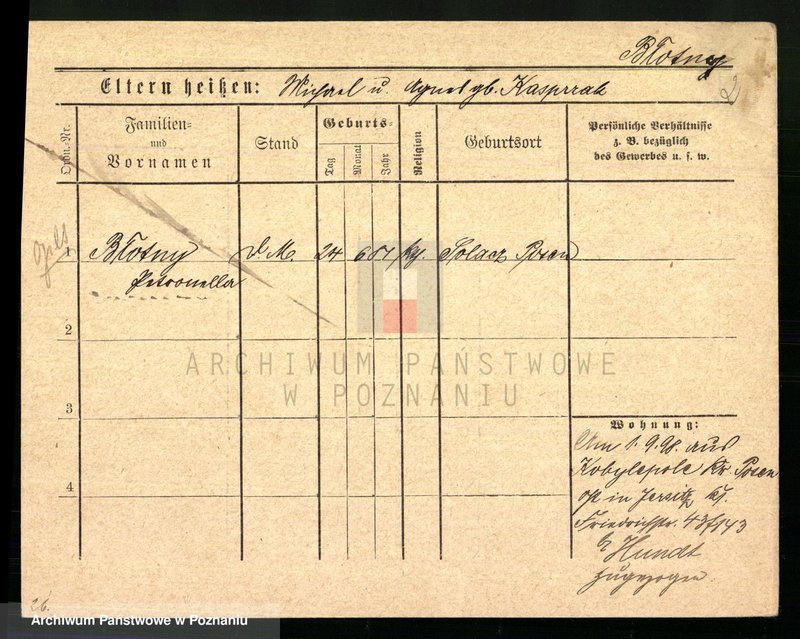 Błotny
2
Eltern heißen: Michael u. Agnes gb. Kasprzak
Ordn.-Nr.
Familien-
und
Vornamen
Stand
Geburts-
Tag
Monat
Jahr
Religion
Geburtsort
Persönliche Verhältnisse
z. B. bezüglich
des Gewerbes u. s. w.
1 Błotny d. M. 24 6 81 kt. Solacz Posen
Petronella
2
ARCHIWUM PAŃSTWOWE
W POZNANIU
3
4
Wohnung:
Am 1.9.98. aus
Kobylepole Kr. Posen
in Jersitz
Friedrichstr.
b Hundt
zugezogen.
26.
Archiwum Państwowe w Poznaniu